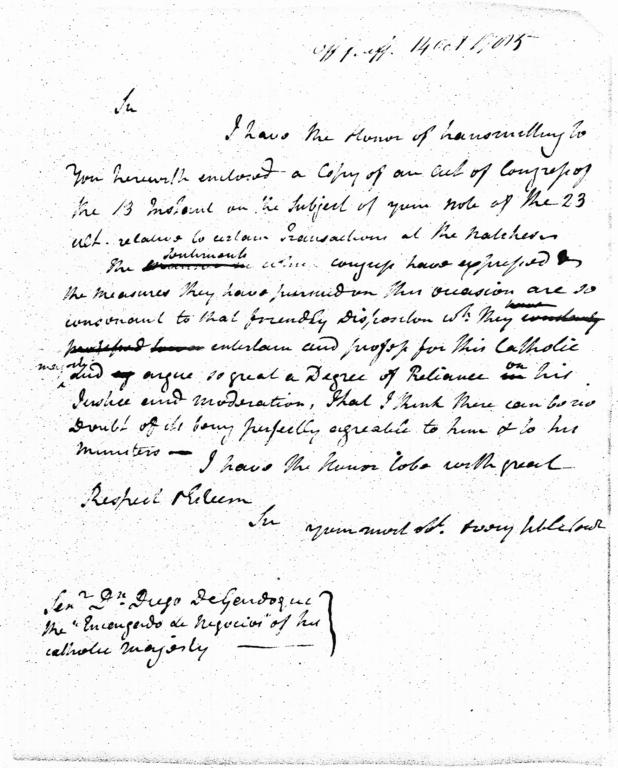 Off f. aff. 14 Oct 1785
Sir
I have the Honor of transmitting to
You herewith enclosed a Copy of an act of Congress of
the 13 Instant on the Subject of your note of the 23
ult. relative to certain Transactions at the Natches
sentiments
The which Congress have expressed &
the measures they have pursued on this occasion are so
consonant to that friendly Disposition wh. they have constantly
professed entertain and profess for his Catholic
majesty
and argue so great a Degree of Reliance on his
Justice and moderation, That I think there can be no
Doubt of its being perfectly agreable to him & to his
ministers —
I have the Honor to be with great
Respect & Esteem
Sir
your most obt. & very hble Servt
Senr. Dn. Diego De Gardoqui
the "Encargado de Negocios" of his
catholic majesty